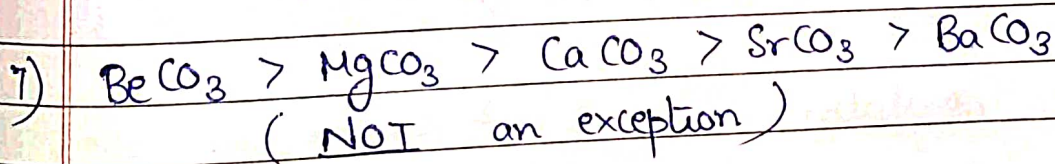 7) BeCO₃ > MgCO₃ > CaCO₃ > SrCO₃ > BaCO₃
( NOT an exception )